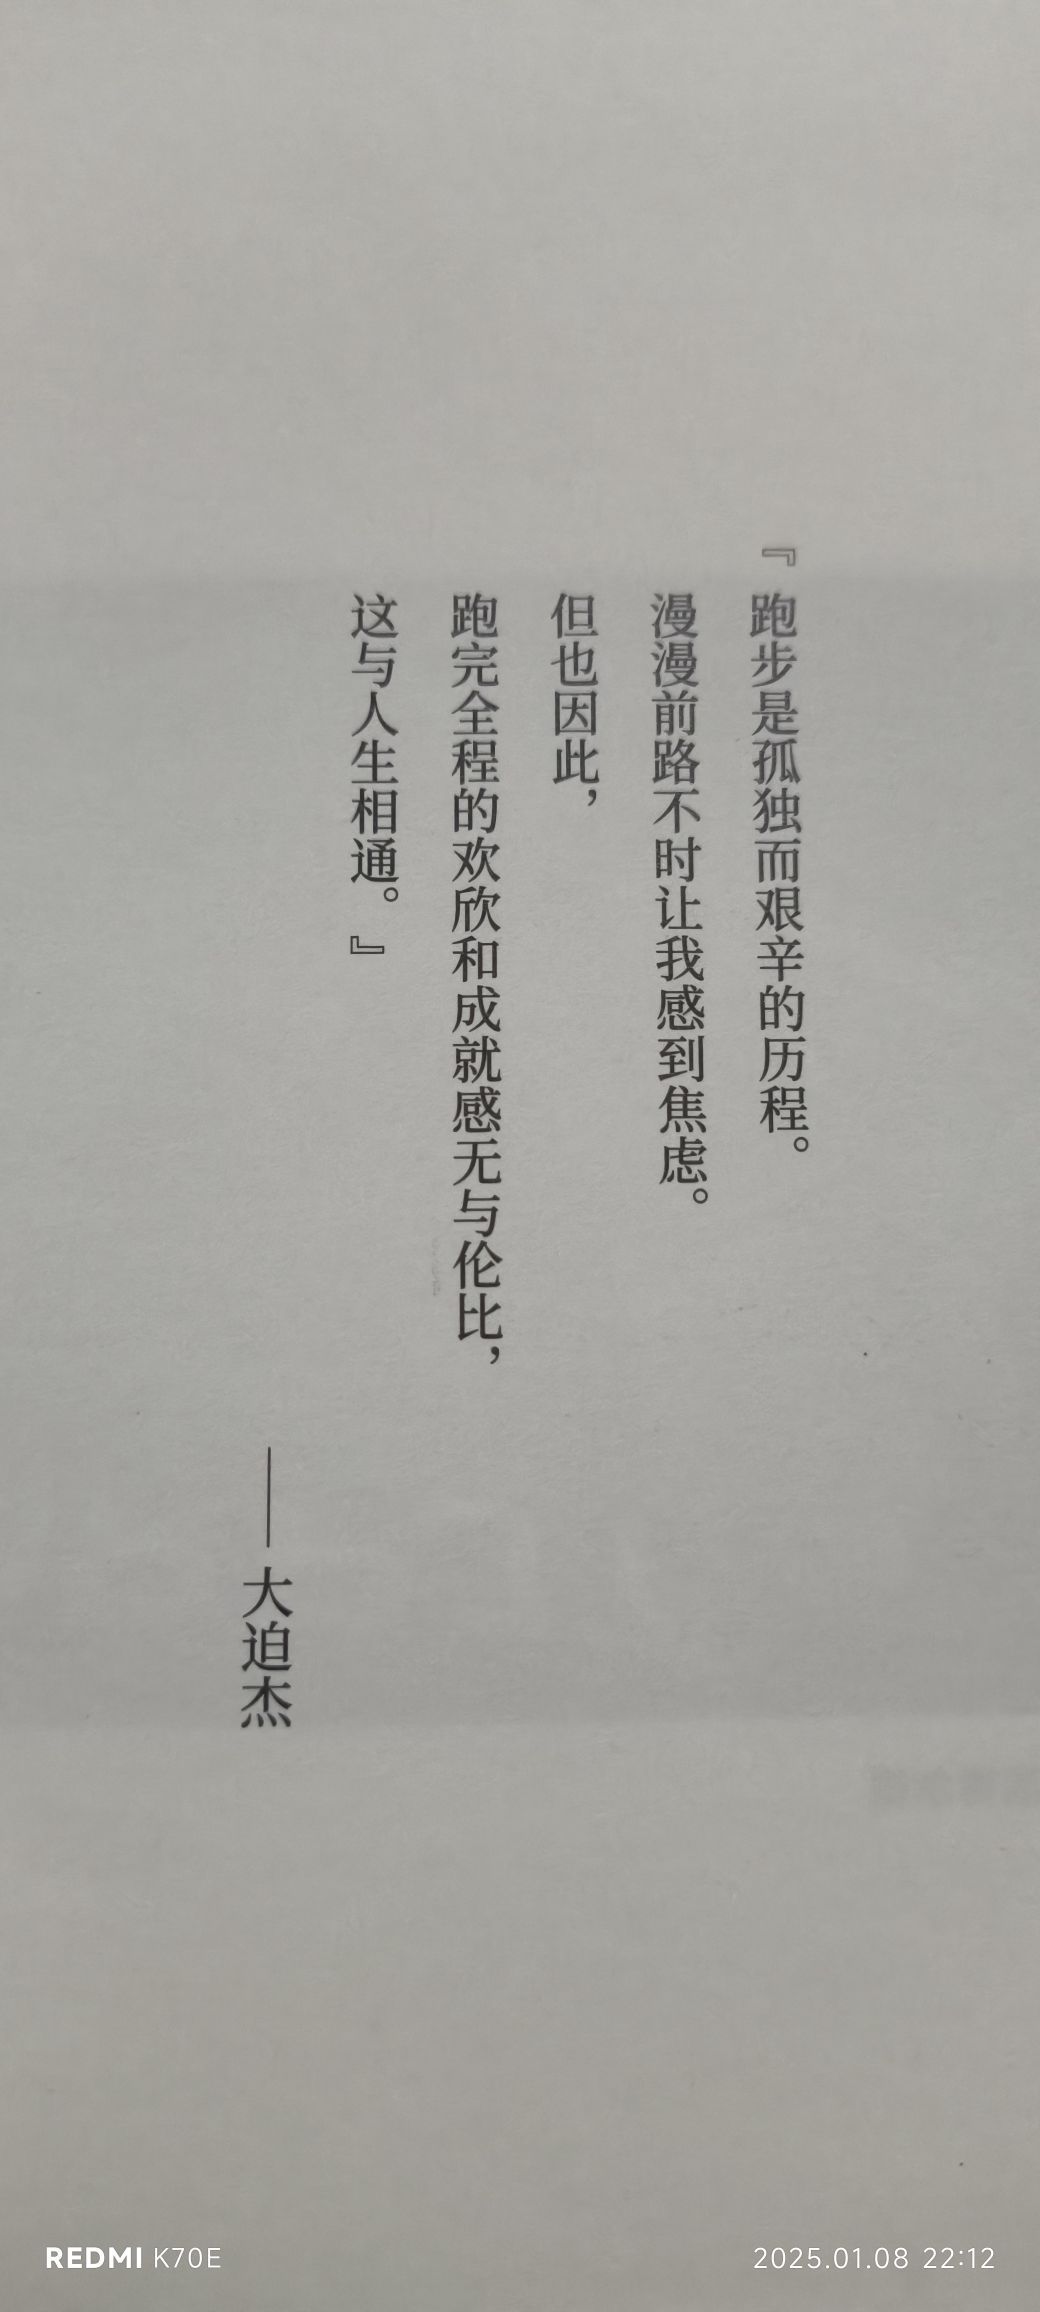 『跑步是孤独而艰辛的历程。
漫漫前路不时让我感到焦虑。
但也因此，
跑完全程的欢欣和成就感无与伦比，
这与人生相通。』
——大迫杰
REDMI K70E
2025.01.08 22:12